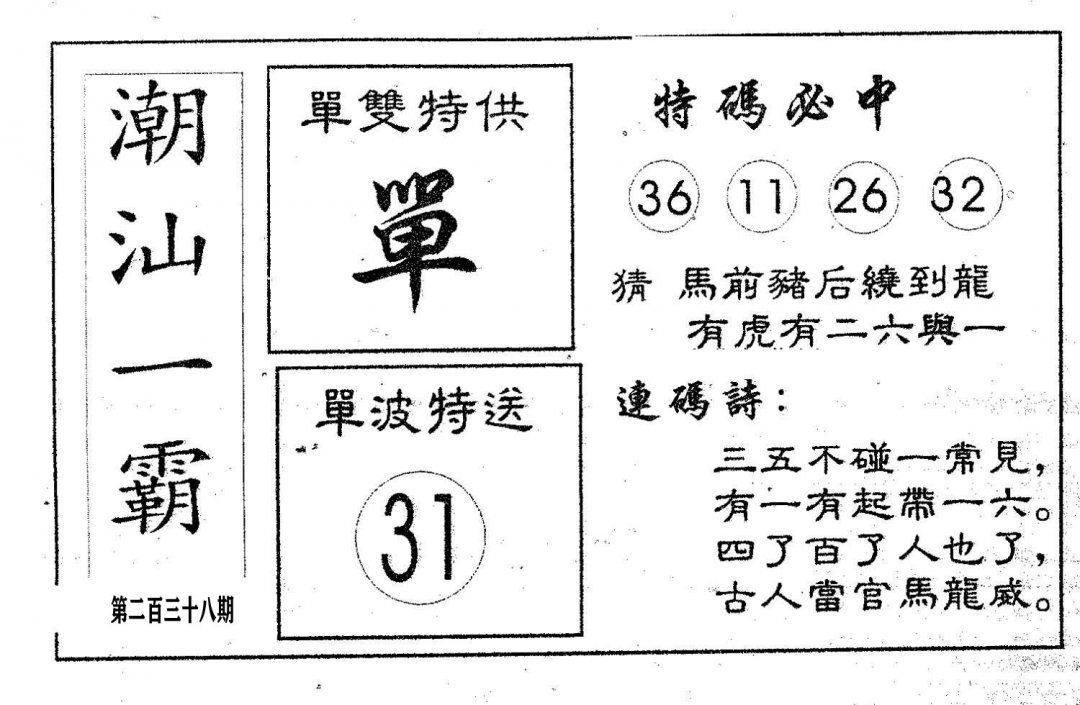 潮汕一霸
第二百三十八期
單雙特供
單
單波特送
31
特碼必中
36 11 26 32
猜 馬前豬后繞到龍
有虎有二六與一
連碼詩：
三五不碰一常見，
有一有起帶一六。
四了百了人也了，
古人當官馬龍威。